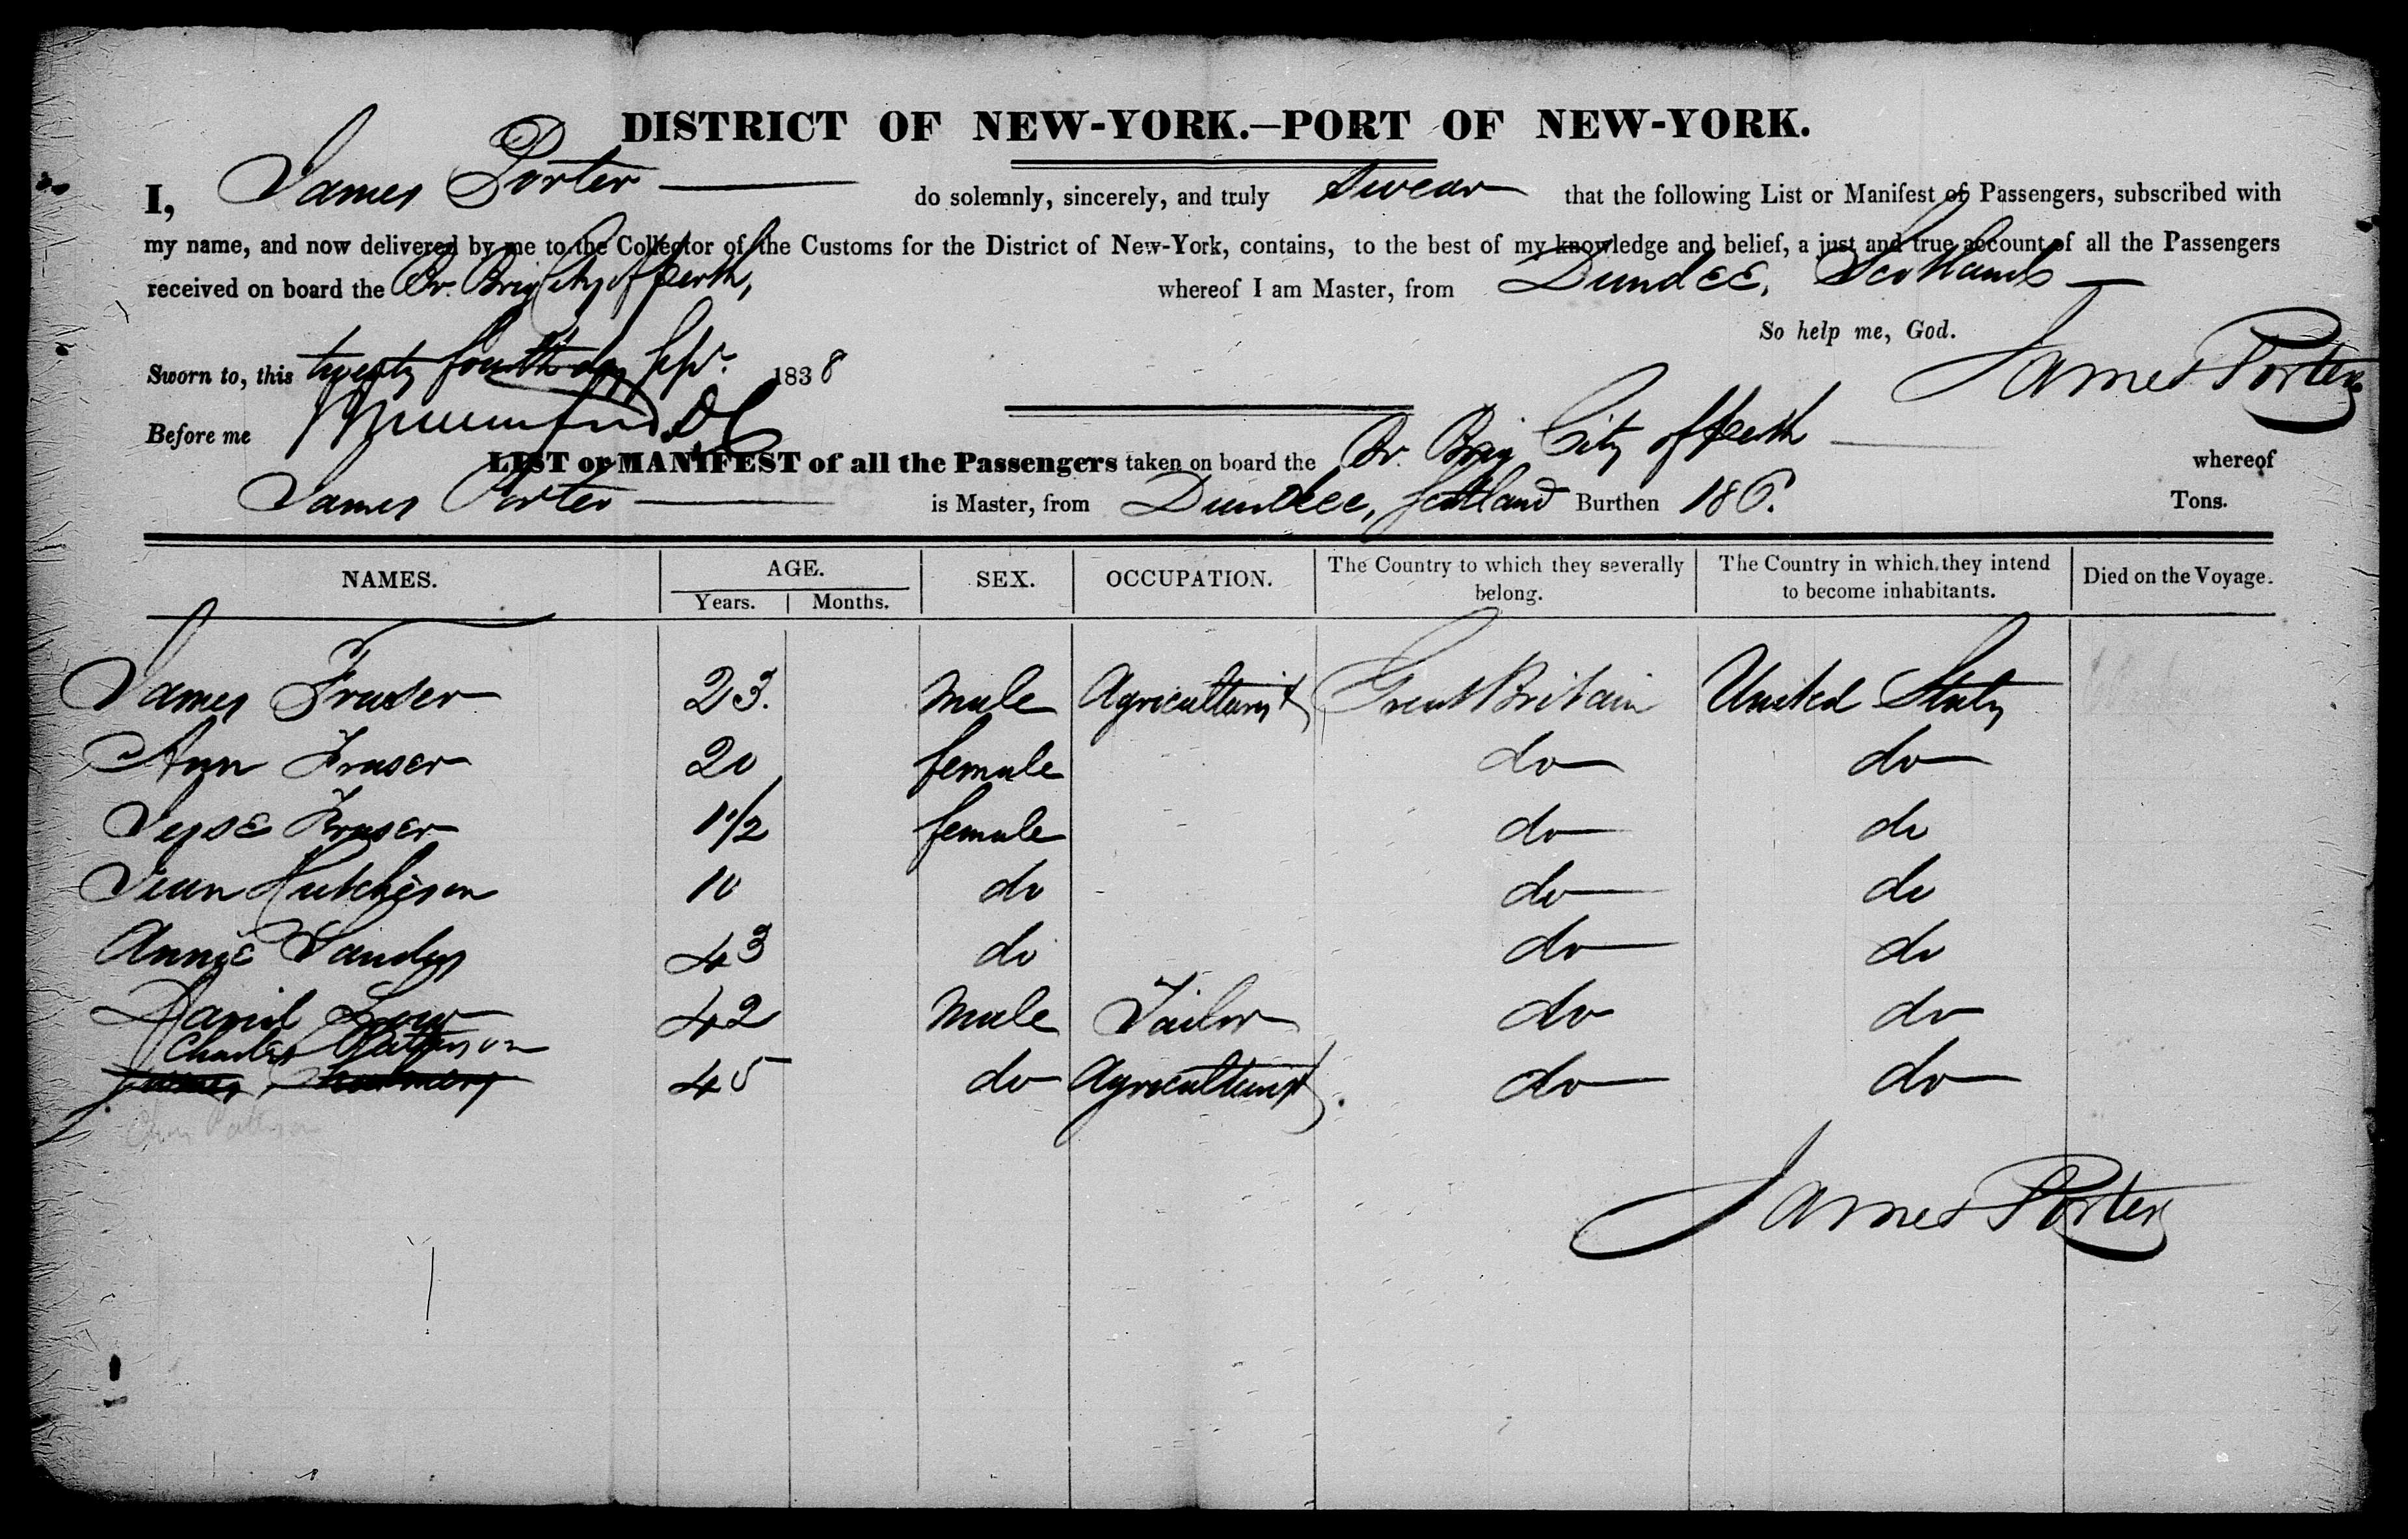 DISTRICT OF NEW-YORK.—PORT OF NEW-YORK.
I, James Porter do solemnly, sincerely, and truly swear that the following List or Manifest of Passengers, subscribed with
my name, and now delivered by me to the Collector of the Customs for the District of New-York, contains, to the best of my knowledge and belief, a just and true account of all the Passengers
received on board the Br. Brig City of Perth, whereof I am Master, from Dundee, Scotland
So help me, God.
Sworn to, this twenty fourth day Sepr. 1838 James Porter
Before me
LIST or MANIFEST of all the Passengers taken on board the Br. Brig City of Perth whereof
James Porter is Master, from Dundee, Scotland Burthen 186. Tons.
NAMES. AGE. SEX. OCCUPATION. The Country to which they severally belong. The Country in which they intend to become inhabitants. Died on the Voyage.
Years. Months.
James Fraser 23. Male Agriculturist Great Britain United States
Ann Fraser 20 female do do
Fraser 1 1/2 female do do
Jean Hutchison 10 do do do
Annie 43 do do do
David Low 42 Male Tailor do do
Charles Patterson
45 do Agriculturist. do do
James Porter